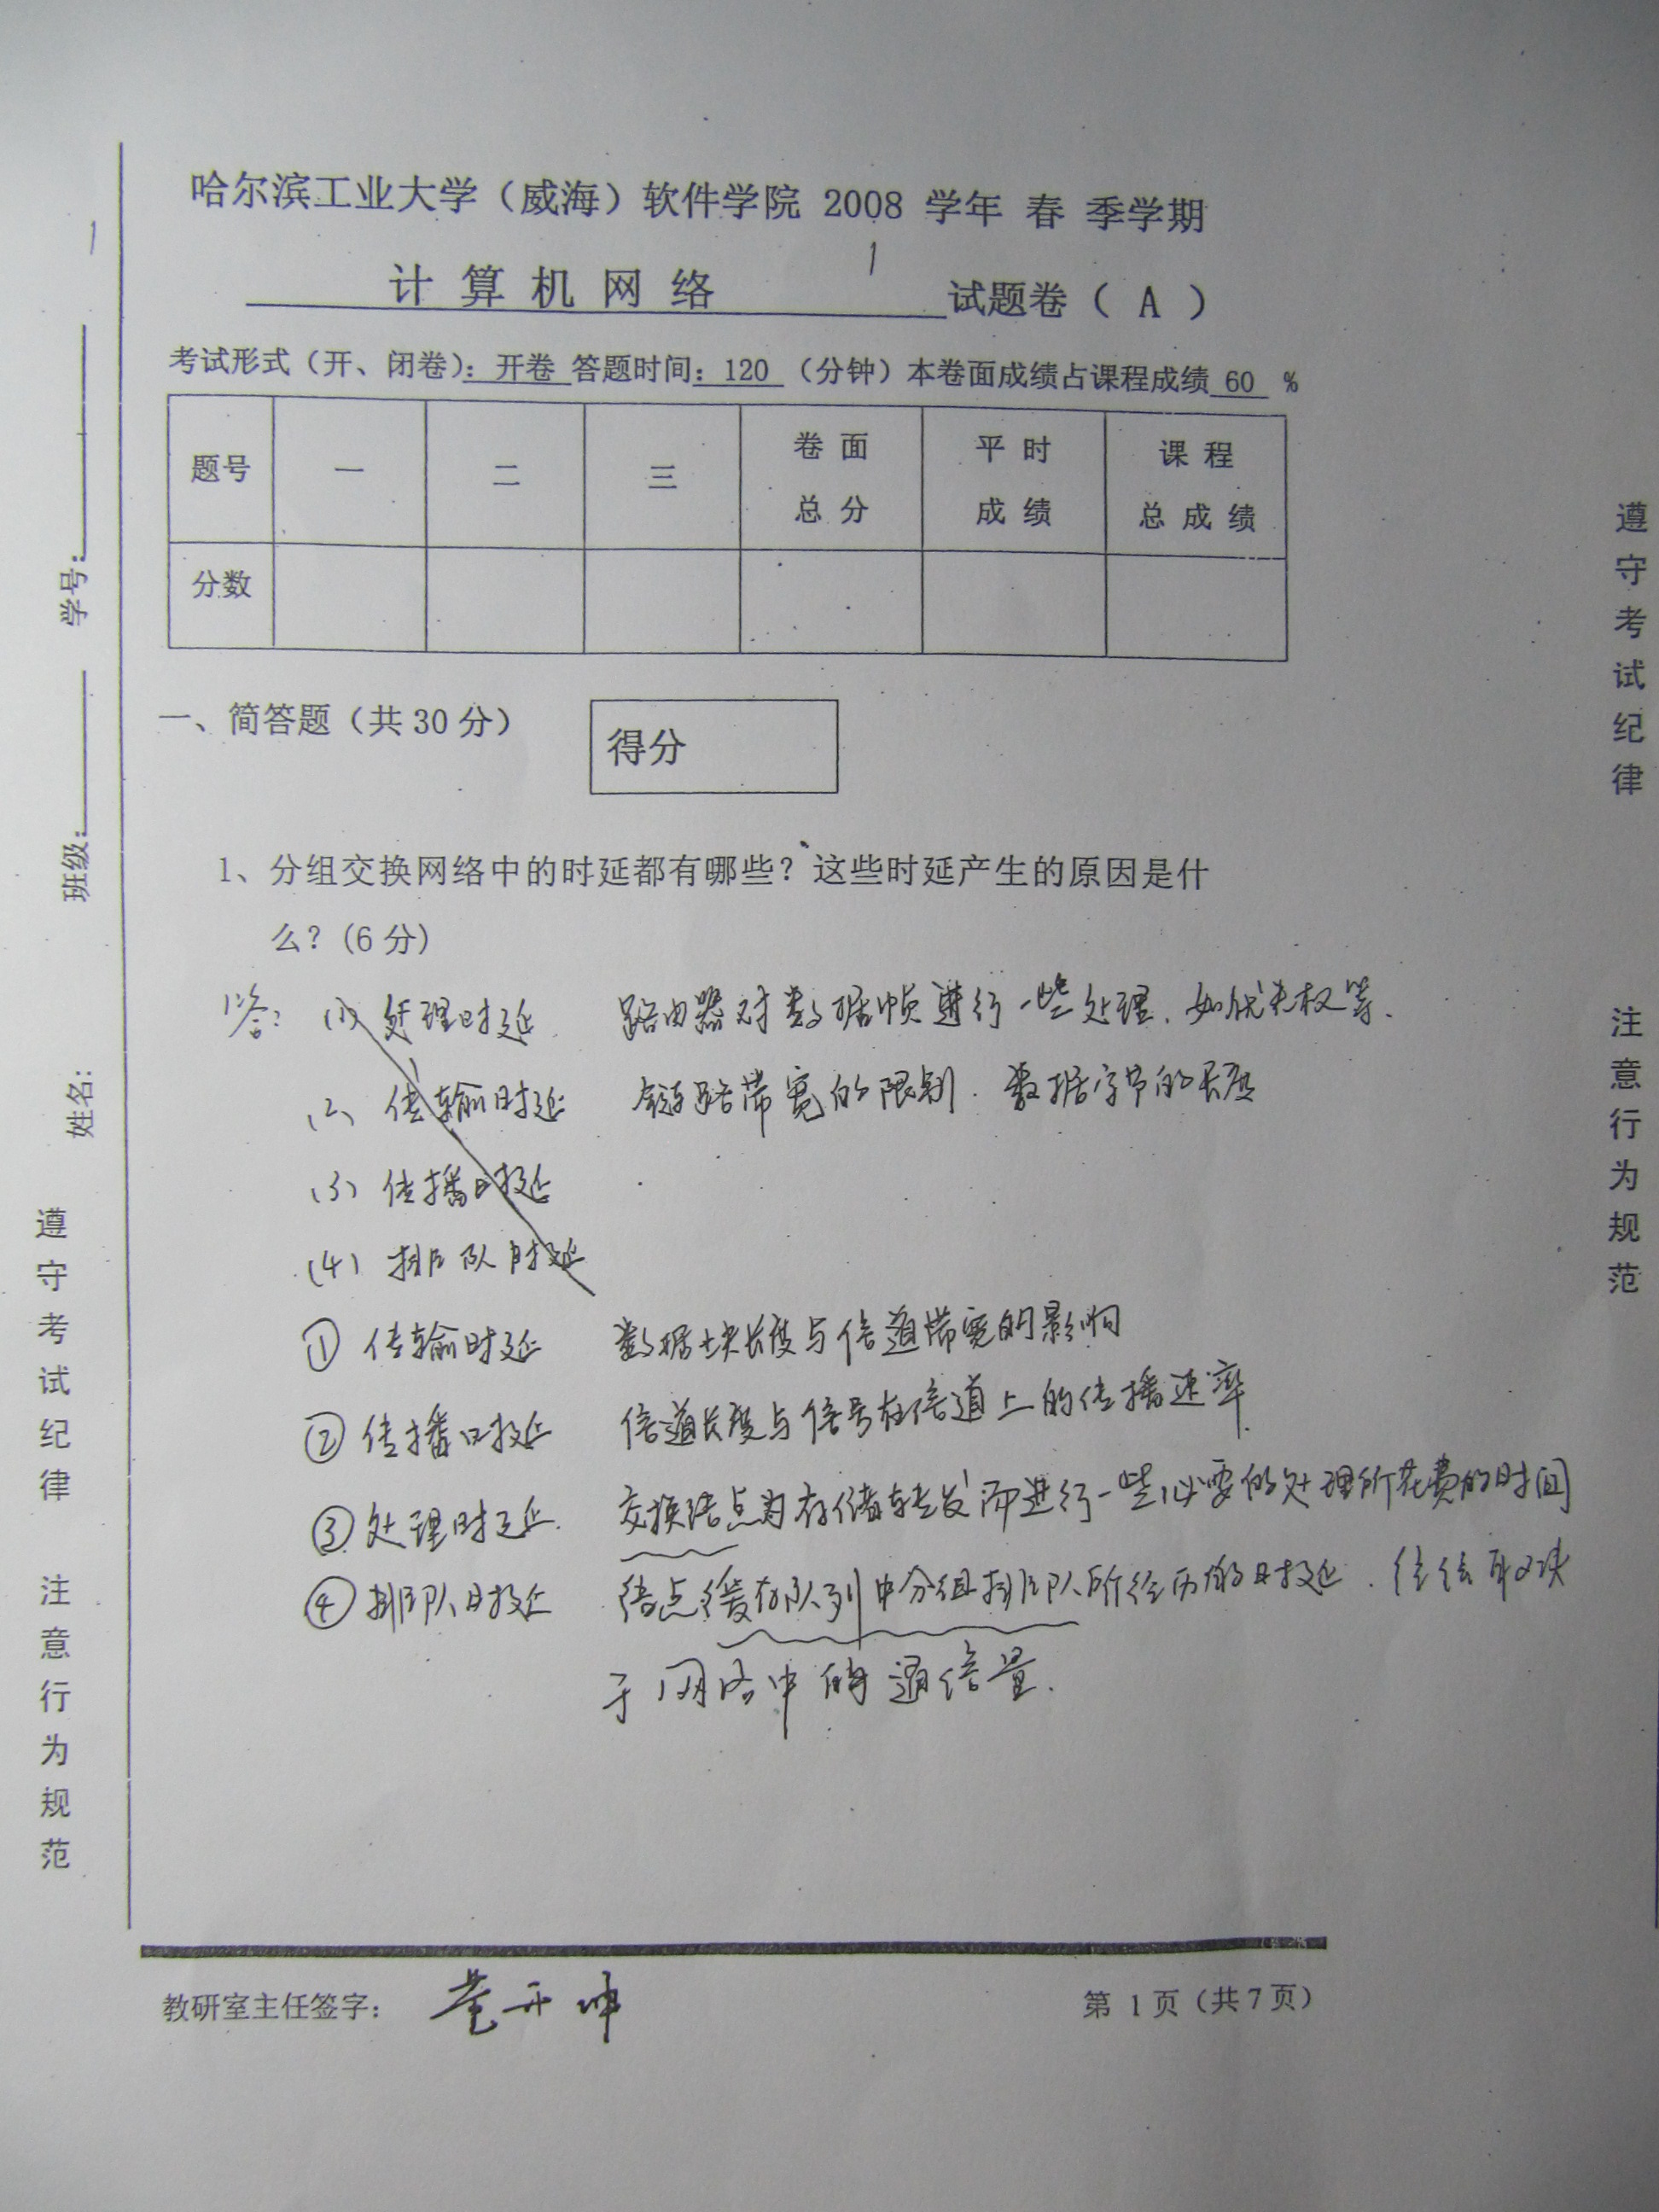 哈尔滨工业大学（威海）软件学院 2008 学年 春 季学期
1
计 算 机 网 络 试题卷（ A ）
考试形式（开、闭卷）：开卷 答题时间：120 （分钟）本卷面成绩占课程成绩 60 %
题号 一 二 三 卷 面 总 分 平 时 成 绩 课 程 总 成 绩
分数
一、简答题（共 30 分）
得分
1、分组交换网络中的时延都有哪些？这些时延产生的原因是什
么？(6 分)
答： (1) 处理时延 路由器对数据帧进行一些处理、如优先权等.
(2) 传输时延 链路带宽的限制. 数据字节的长度
(3) 传播时延
(4) 排队时延
① 传输时延 数据块长度与信道带宽的影响
② 传播时延 信道长度与信号在信道上的传播速率.
③ 处理时延. 交换结点为存储转发而进行一些必要的处理所花费的时间
④ 排队时延 结点缓存队列中分组排队所经历的时延. 往往取决
于网络中的通信量.
教研室主任签字：
第 1 页（共 7 页）
1
学号:
班级:
姓名:
遵守考试纪律
注意行为规范
遵守考试纪律
注意行为规范